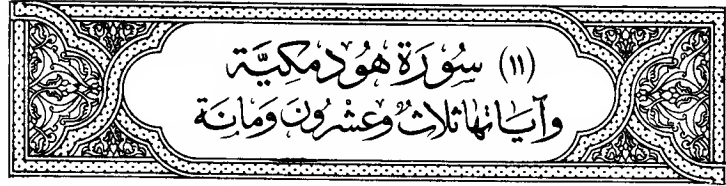 (١١) سُورَة هُود مكيَّة
وآياتها ثلاثٌ وعشرُون وَمائة